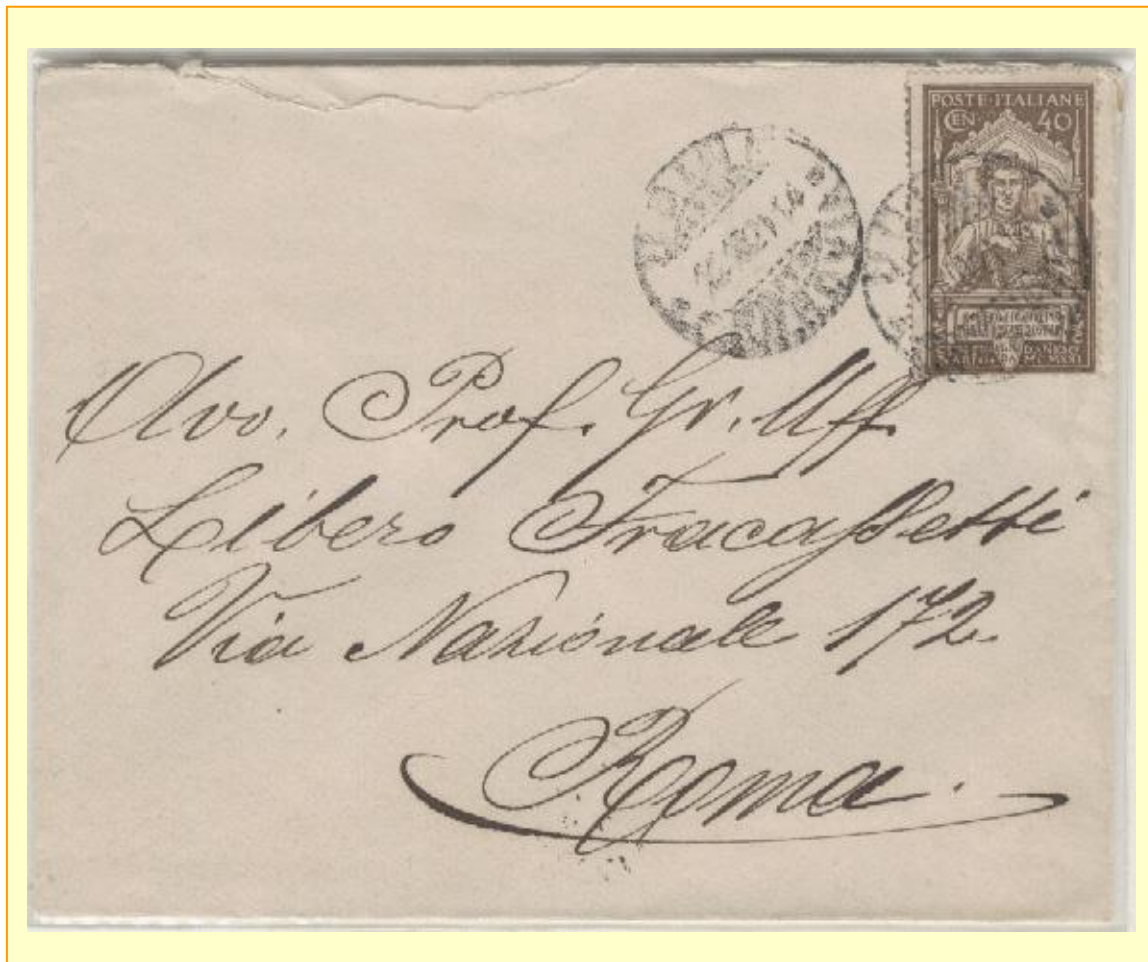 POSTE ITALIANE
CEN 40
MCMXXI
Avv. Prof. Gr. Uff.
Libero Fracassetti
Via Nazionale 172.
Roma.